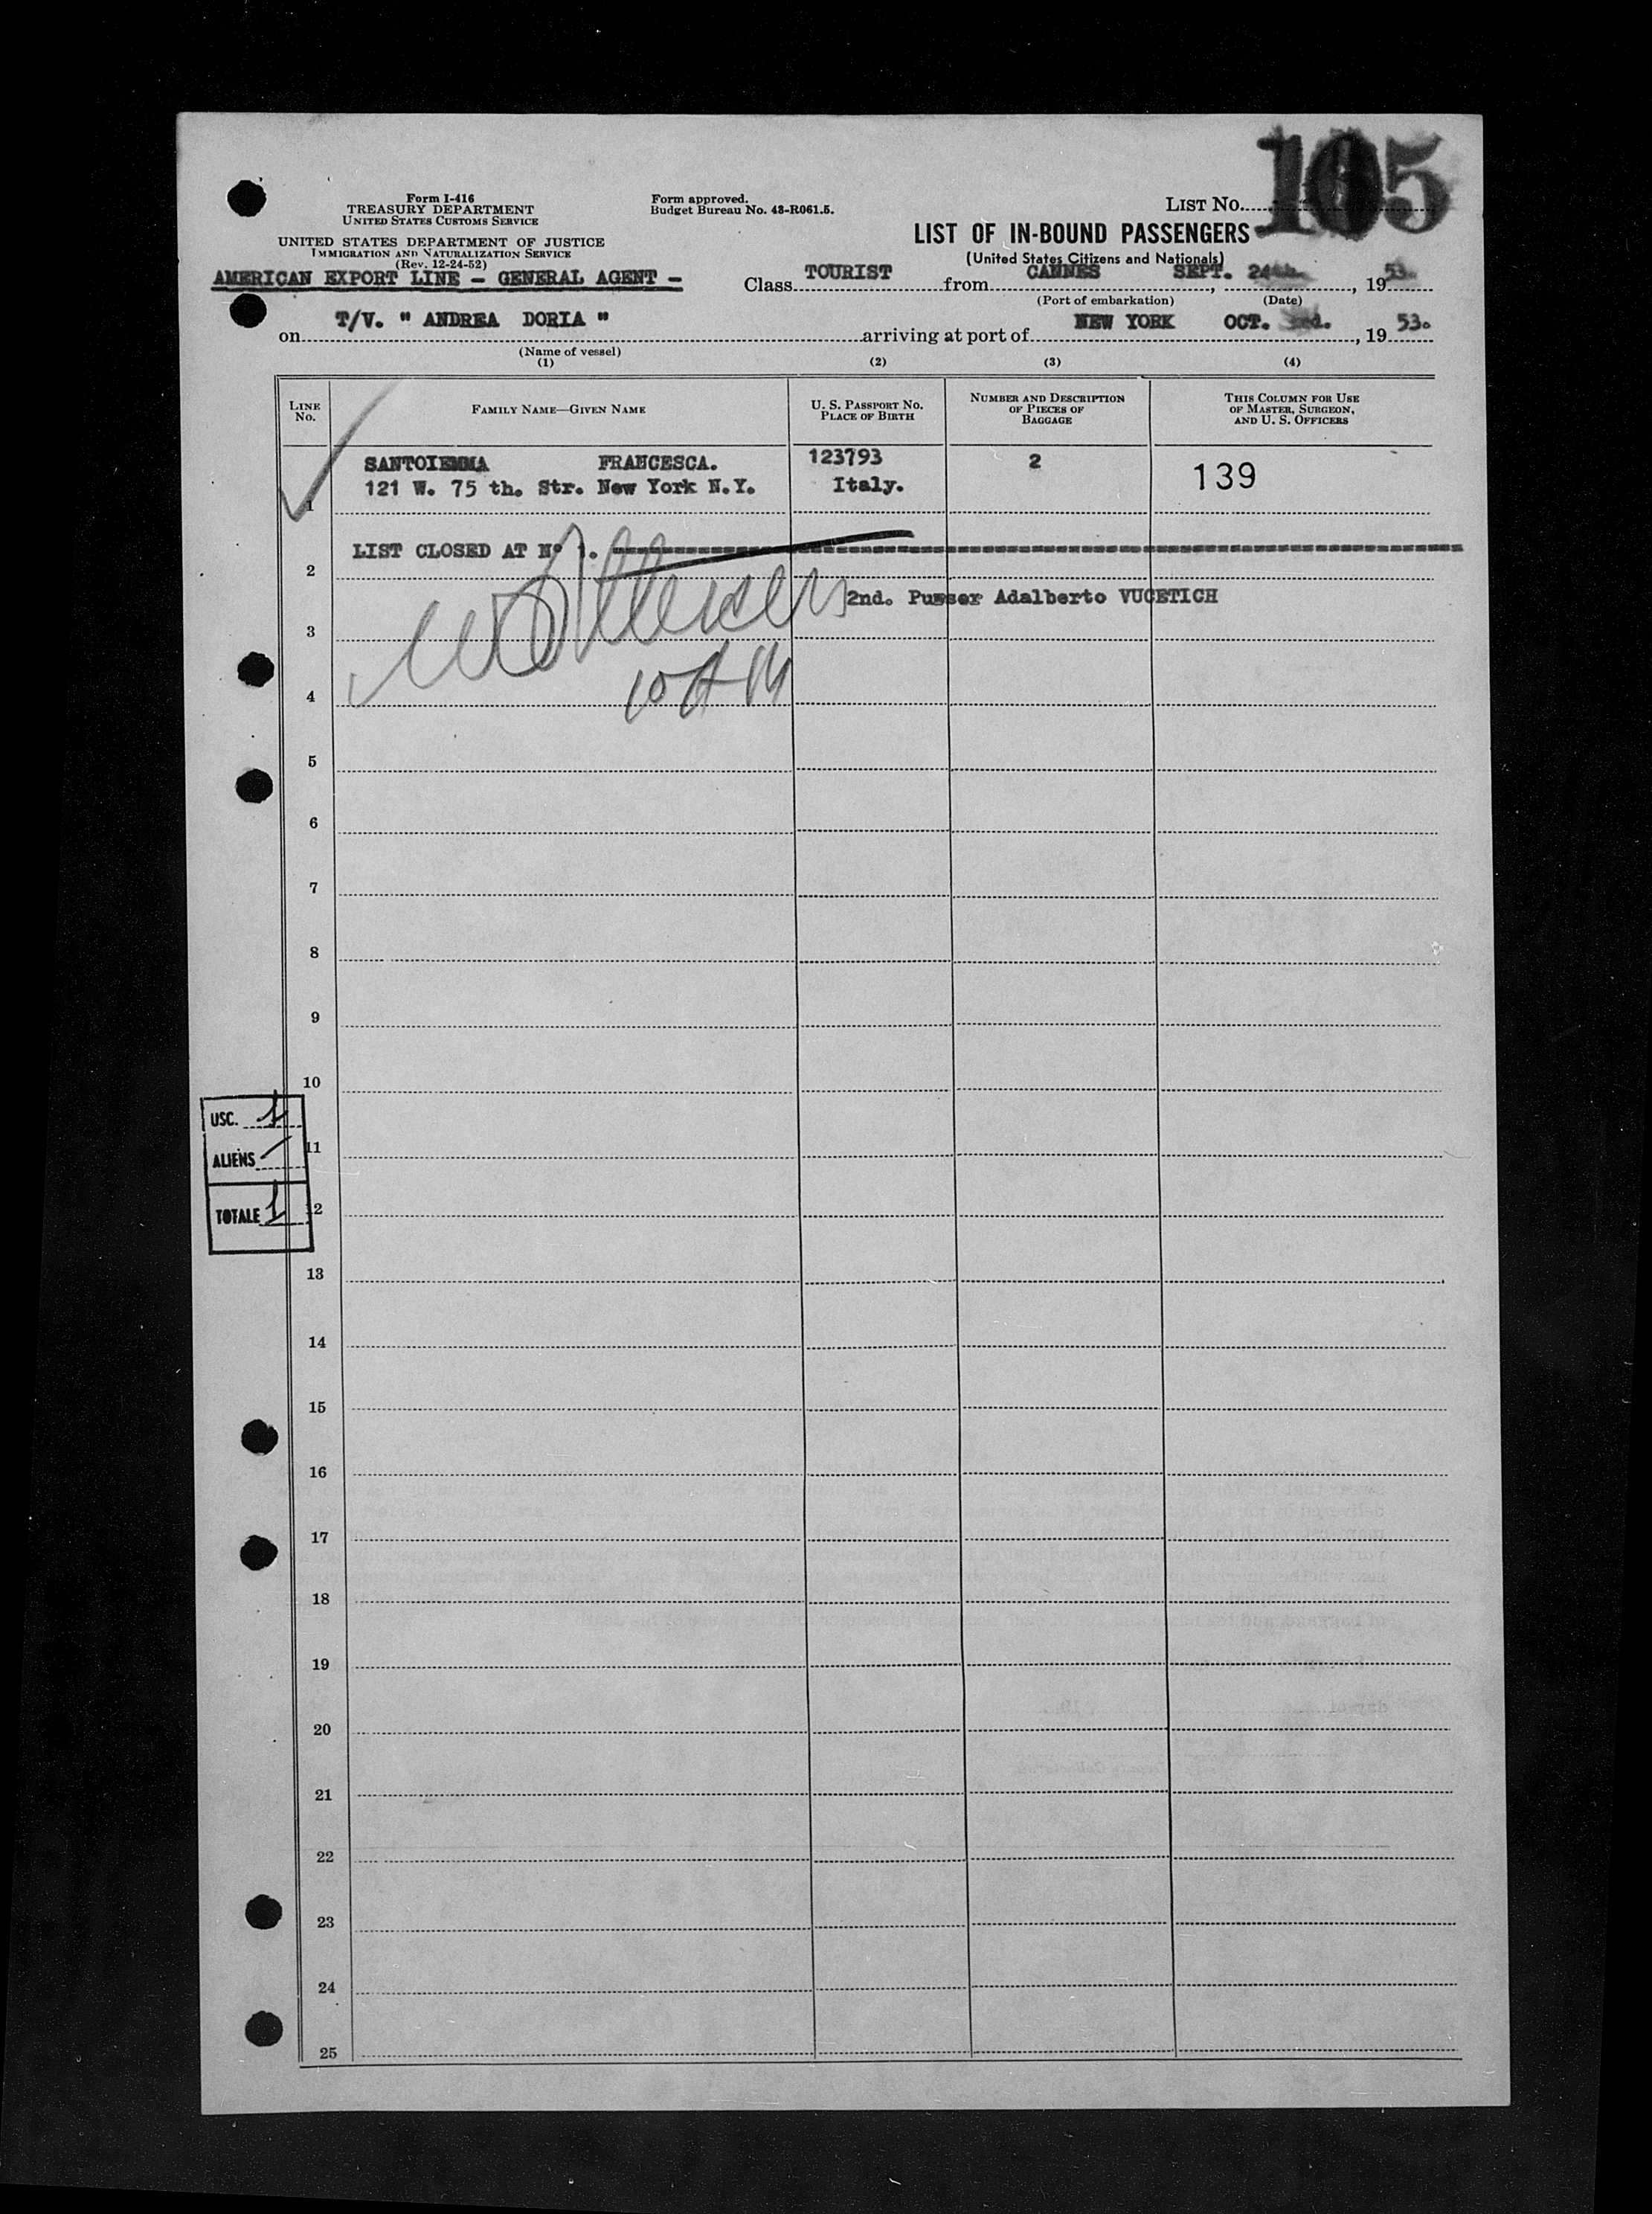 105
Form I-416
TREASURY DEPARTMENT
UNITED STATES CUSTOMS SERVICE
Form approved.
Budget Bureau No. 43-R061.5.
LIST NO.
UNITED STATES DEPARTMENT OF JUSTICE
IMMIGRATION AND NATURALIZATION SERVICE
(Rev. 12-24-52)
LIST OF IN-BOUND PASSENGERS
(United States Citizens and Nationals)
AMERICAN EXPORT LINE - GENERAL AGENT -
Class TOURIST from CANNES, SEPT. 24th., 1953.
(Port of embarkation) (Date)
on T/V. " ANDREA DORIA " arriving at port of NEW YORK OCT. , 1953.
(Name of vessel)
(1) (2) (3) (4)
LINE No. FAMILY NAME—GIVEN NAME U. S. PASSPORT NO. PLACE OF BIRTH NUMBER AND DESCRIPTION OF PIECES OF BAGGAGE THIS COLUMN FOR USE OF MASTER, SURGEON, AND U. S. OFFICERS
SANTOIEMMA FRANCESCA. 123793 2 139
1 121 W. 75 th. Str. New York N.Y. Italy.
LIST CLOSED AT Nº 1.
2
2nd. Purser Adalberto VUCETICH
3
10 AM
4
5
6
7
8
9
10
USC. 1
11
ALIENS /
12
TOTALE 1
13
14
15
16
17
18
19
20
21
22
23
24
25